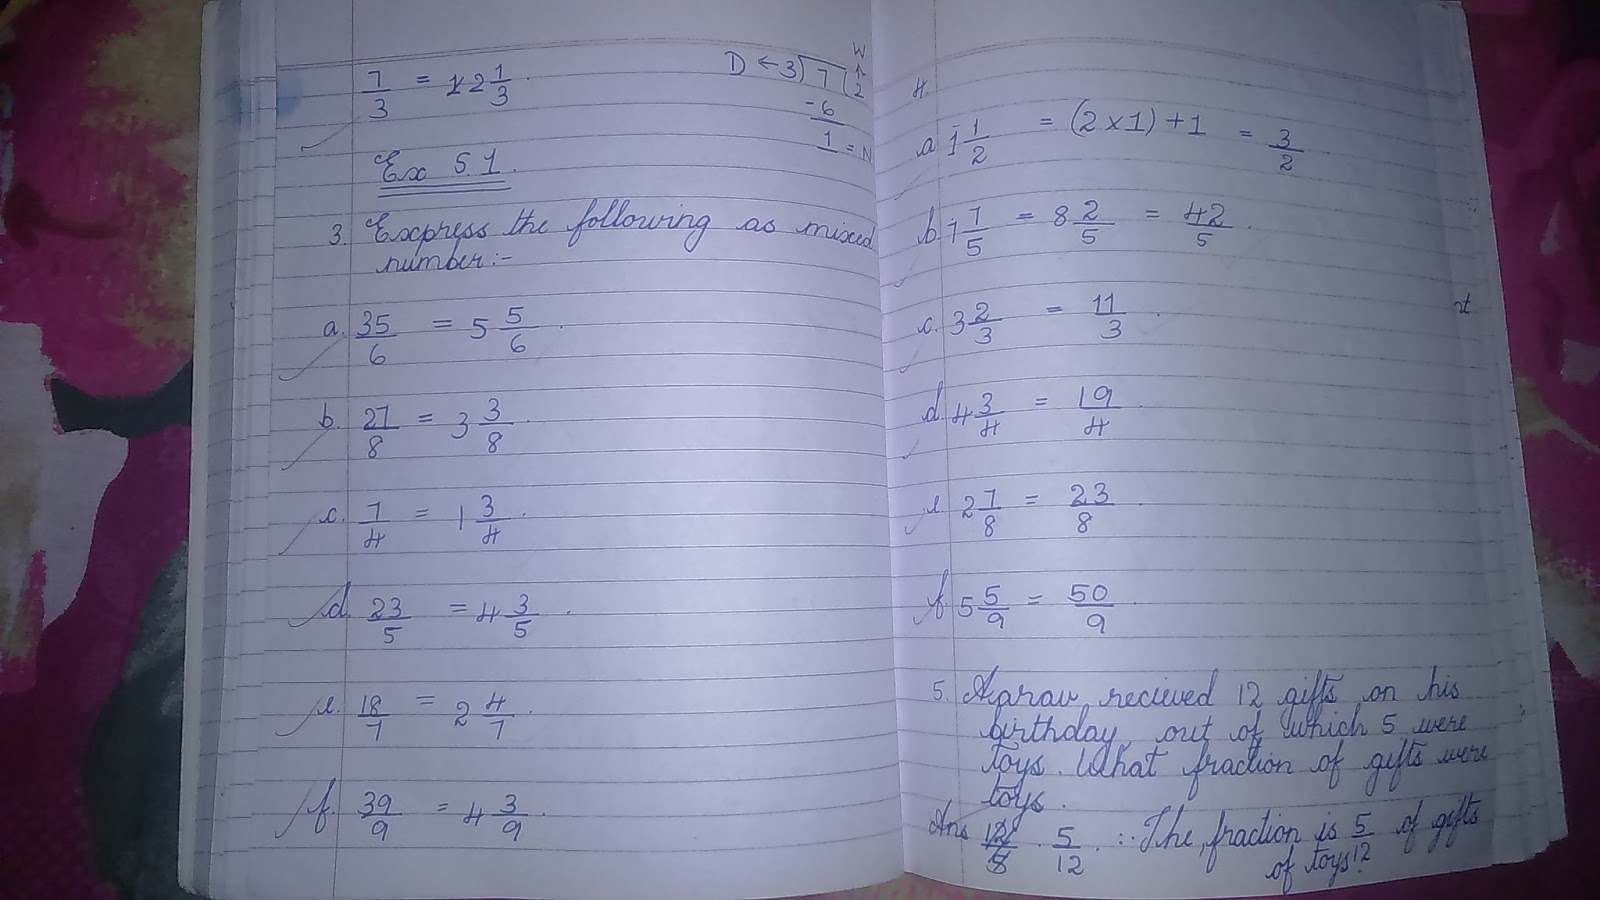 7/3 = 2 1/3.
D ← 3) 7 ( 2 → W
-6
1 = N
Ex 5.1.
3. Express the following as mixed
number:-
a. 35/6 = 5 5/6.
b. 27/8 = 3 3/8.
c. 7/4 = 1 3/4.
d. 23/5 = 4 3/5.
e. 18/7 = 2 4/7.
f. 39/9 = 4 3/9.
4.
a 1 1/2 = (2 x 1) + 1 = 3/2.
b 7/5 = 8 2/5 = 42/5.
c. 3 2/3 = 11/3.
d. 4 3/4 = 19/4.
e 2 7/8 = 23/8.
f. 5 5/9 = 50/9.
5. Aarav recieved 12 gifts on his
birthday out of which 5 were
toys. What fraction of gifts were
toys.
Ans 5/12. ∴ The, fraction is 5/12 of gifts
of toys.